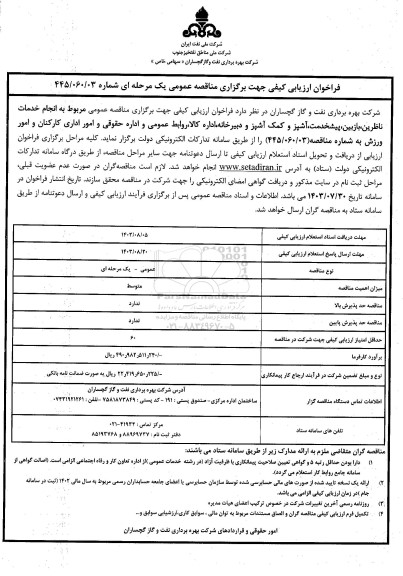 شرکت ملی نفت ایران
شرکت ملی مناطق نفتخیز جنوب
شرکت بهره برداری نفت و گاز گچساران (سهامی خاص)
فراخوان ارزیابی کیفی جهت برگزاری مناقصه عمومی یک مرحله ای شماره ۴۴۵/۰۶۰/۰۳
شرکت بهره برداری نفت و گاز گچساران در نظر دارد فراخوان ارزیابی کیفی جهت برگزاری مناقصه عمومی مربوط به انجام خدمات
ناظرین،بازبین،پیشخدمت،آشپز و کمک آشپز و دبیرخانه،اداره کالا،روابط عمومی و اداره حقوقی و امور اداری کارکنان و امور
ورزش به شماره مناقصه(۴۴۵/۰۶۰/۰۳) را از طریق سامانه تدارکات الکترونیکی دولت برگزار نماید. کلیه مراحل برگزاری فراخوان
ارزیابی از دریافت و تحویل اسناد استعلام ارزیابی کیفی تا ارسال دعوتنامه جهت سایر مراحل مناقصه، از طریق درگاه سامانه تدارکات
الکترونیکی دولت (ستاد) به آدرس www.setadiran.ir انجام خواهد شد. لازم است مناقصه‌گران در صورت عدم عضویت قبلی،
مراحل ثبت نام در سایت مذکور و دریافت گواهی امضای الکترونیکی را جهت شرکت در مناقصه محقق سازند. تاریخ انتشار فراخوان در
سامانه تاریخ ۱۴۰۳/۰۷/۳۰ می باشد. اطلاعات و اسناد مناقصه عمومی پس از برگزاری فرآیند ارزیابی کیفی و ارسال دعوتنامه از طریق
سامانه ستاد به مناقصه گران ارسال خواهد شد.
مهلت دریافت اسناد استعلام ارزیابی کیفی ۱۴۰۳/۰۸/۰۵
مهلت ارسال پاسخ استعلام ارزیابی کیفی ۱۴۰۳/۰۸/۲۰
نوع مناقصه عمومی - یک مرحله ای
میزان اهمیت مناقصه متوسط
مناقصه حد پذیرش بالا ندارد
مناقصه حد پذیرش پایین ندارد
حداقل امتیاز ارزیابی کیفی جهت شرکت در مناقصه ۶۰
برآورد کارفرما ۴۹۰,۹۸۲,۵۱۱,۲۴۰/- ریال
نوع و مبلغ تضمین شرکت در فرآیند ارجاع کار پیمانکاری ۲۲,۲۱۹,۶۵۰,۲۲۵/- ریال به صورت ضمانت نامه بانکی
اطلاعات تماس دستگاه مناقصه گزار آدرس شرکت بهره برداری نفت و گاز گچساران
ساختمان اداره مرکزی - صندوق پستی : ۱۹۱ - کد پستی : ۷۵۸۱۸۷۳۸۴۹ - تلفن : ۰۷۴۳۱۹۲۱۲۶۱
تلفن های سامانه ستاد مرکز تماس : ۴۱۹۳۴-۰۲۱
دفتر ثبت نام : ۸۸۹۶۹۷۳۷ و ۸۵۱۹۳۷۶۸
مناقصه گران متقاضی ملزم به ارائه مدارک زیر از طریق سامانه ستاد می باشند:
۱) دارا بودن حداقل رتبه ۵ و گواهی تعیین صلاحیت پیمانکاری با ظرفیت آزاد (در رشته خدمات عمومی )از اداره تعاون کار و رفاه اجتماعی الزامی است. (اصالت گواهی از
سامانه جامع روابط کار استعلام می گردد).
۲) ارائه یک نسخه تایید شده از صورت های مالی حسابرسی شده توسط سازمان حسابرسی یا اعضای جامعه حسابداران رسمی مربوط به سال مالی ۱۴۰۲ (ثبت در سامانه
جام )در زمان ارزیابی کیفی الزامی می باشد.
۳) روزنامه رسمی آخرین تغییرات شرکت در خصوص ترکیب اعضای هیات مدیره
۴) تکمیل فرم ارزیابی کیفی مناقصه گران و الصاق مستندات مربوط به توان مالی ، سوابق کاری،ارزشیابی سوابق و...
امور حقوقی و قراردادهای شرکت بهره برداری نفت و گاز گچساران